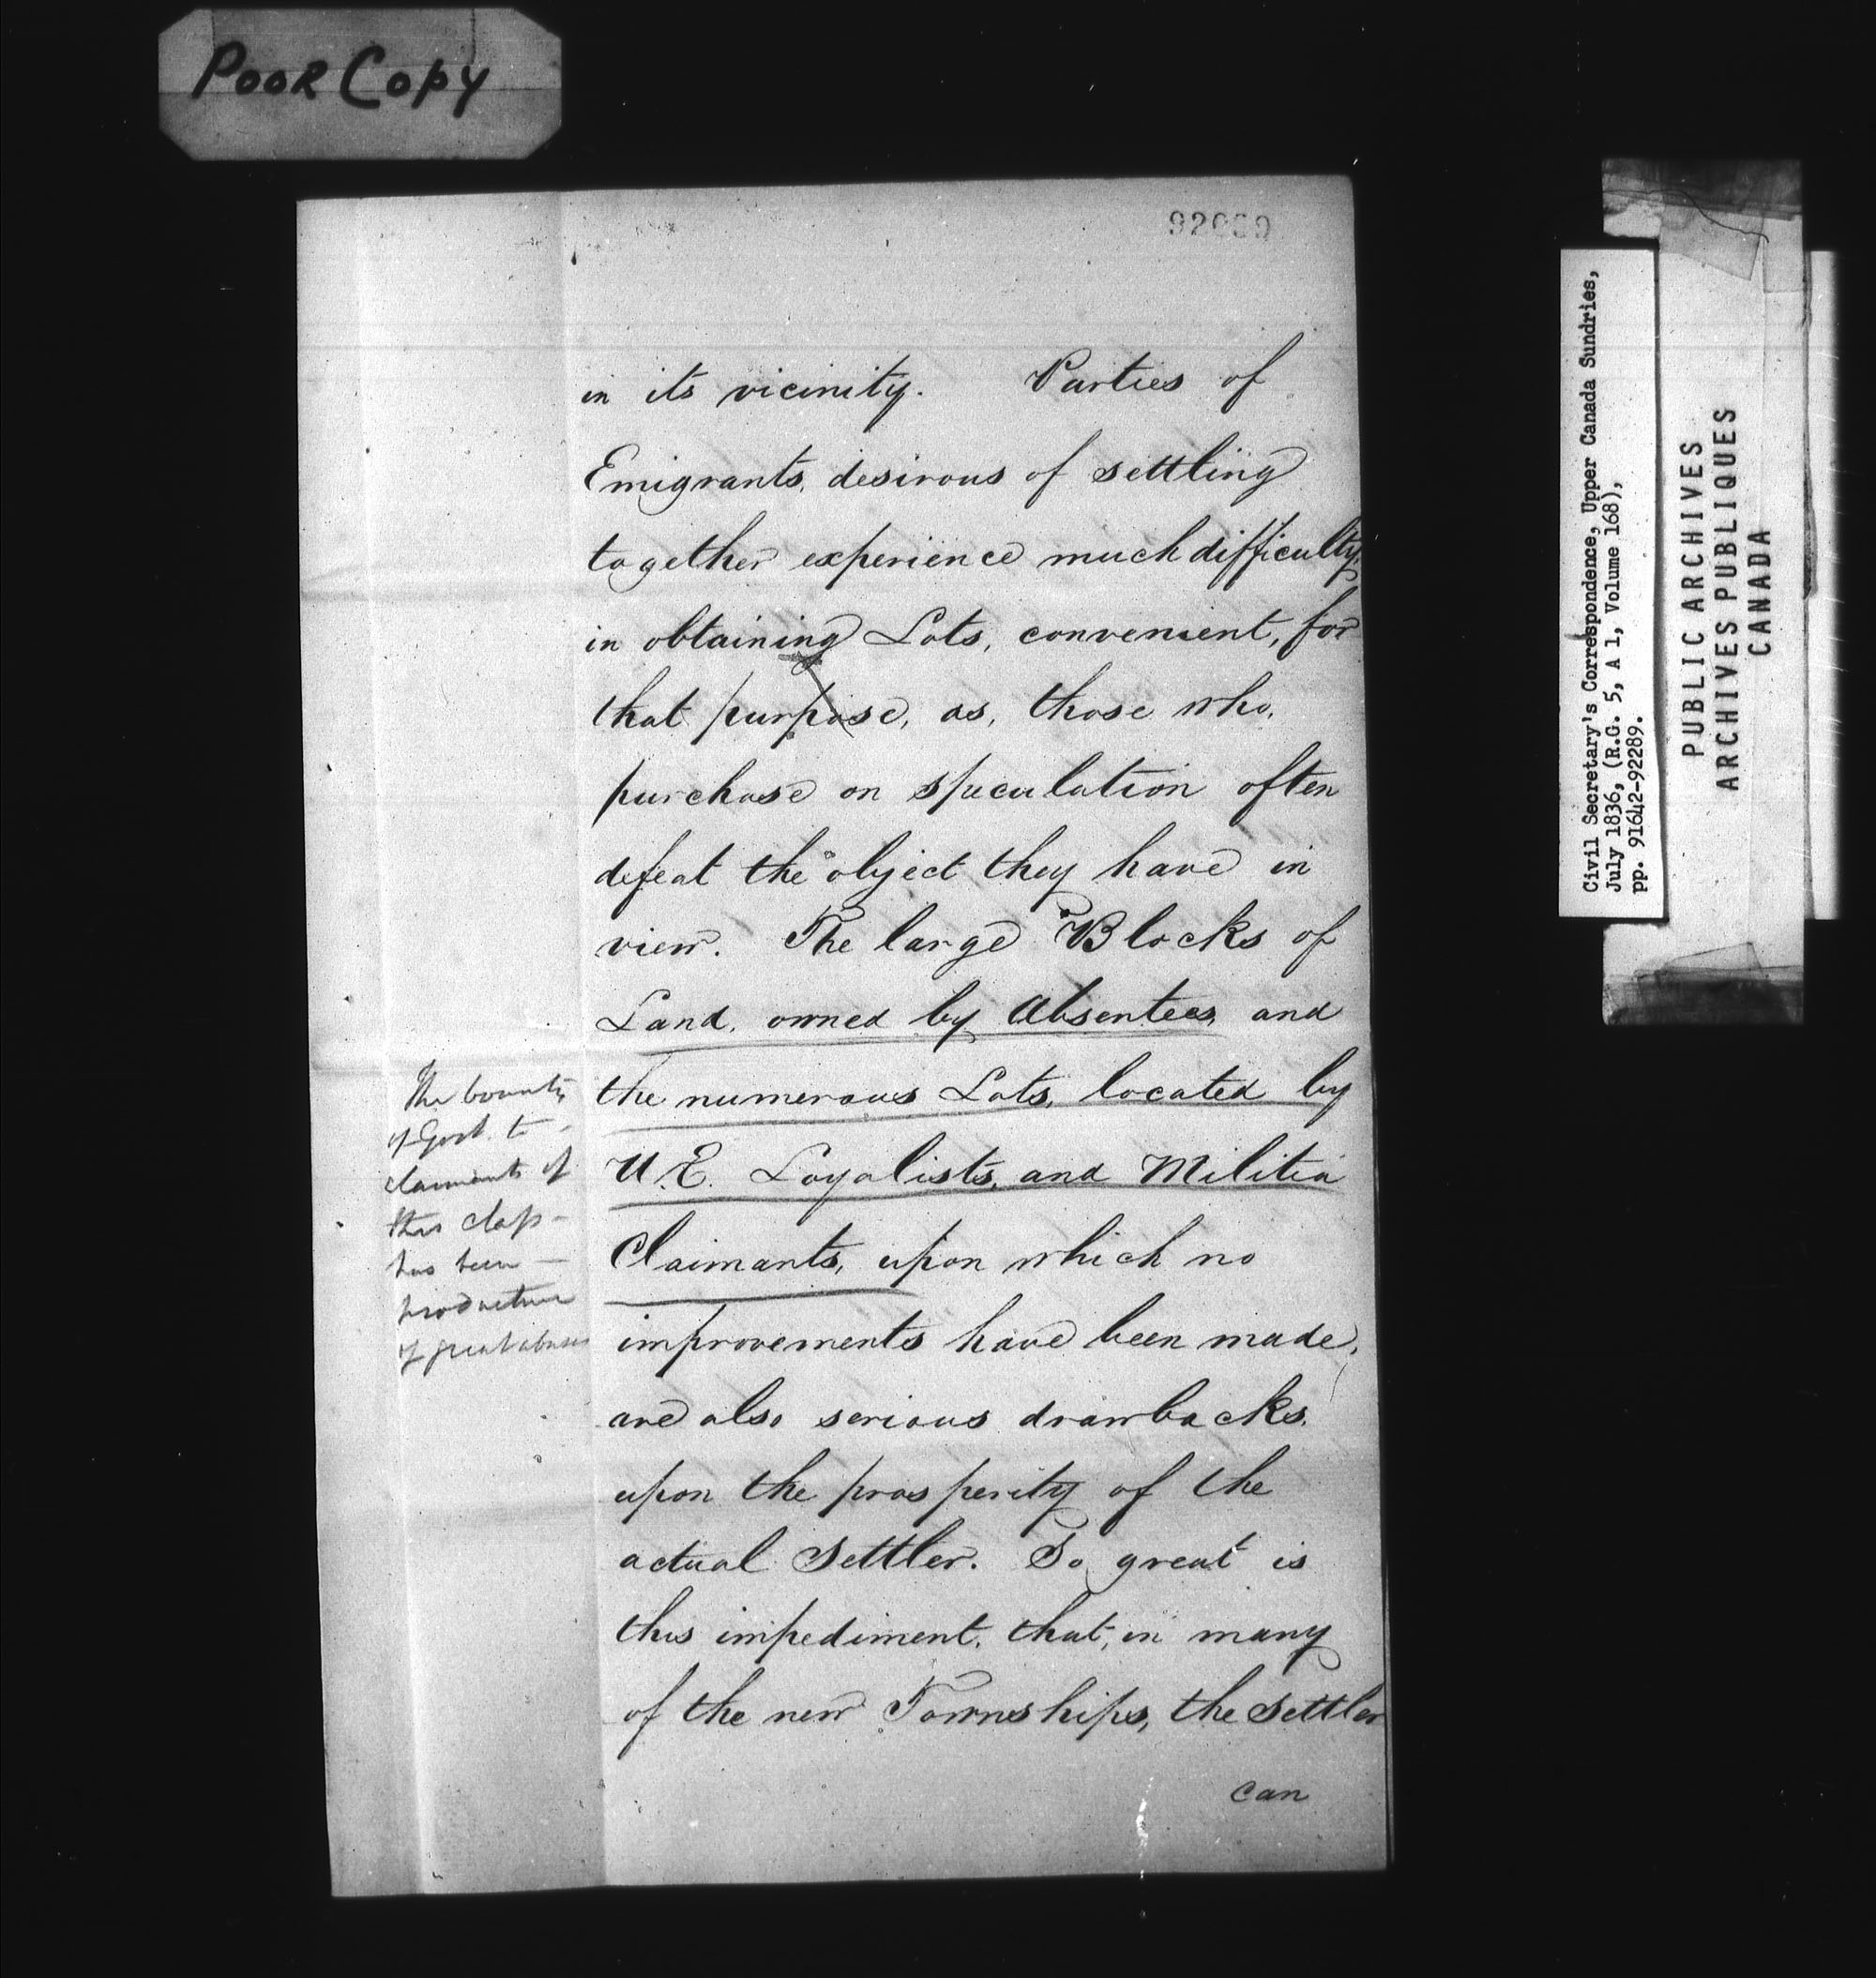 Poor Copy
in its vicinity. Parties of
Emigrants, desirous of settling
together experience much difficulty,
in obtaining Lots, convenient, for
that purpose, as, those who,
purchase on speculation often
defeat the object they have in
view. The large Blocks of
Land, owned by Absentees, and
the numerous Lots, located by
U.E. Loyalists, and Militia
Claimants, upon which no
improvements have been made,
are also serious drawbacks,
upon the prosperity of the
actual Settler. So great is
this impediment, that, in many
of the new Townships, the Settler
can
The bounty
of Govt. to
claimants of
this class
has been
productive
of great abuses
Civil Secretary's Correspondence, Upper Canada Sundries,
July 1836, (R.G. 5, A 1, Volume 168),
pp. 91642-92289.
PUBLIC ARCHIVES
ARCHIVES PUBLIQUES
CANADA